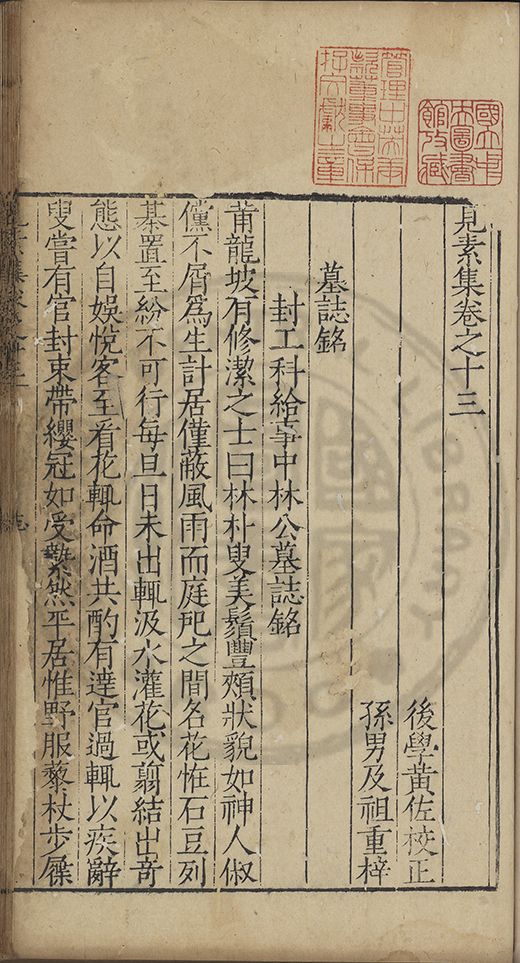 見素集卷之十三
後學黃佐校正
孫男及祖重梓
墓誌銘
封工科給事中林公墓誌銘
莆龍坡有修潔之士曰林朴叟美鬚豐頰狀貌如神人俶
儻不屑爲生計居僅蔽風雨而庭戺之間名花恠石豆列
棊置至紛不可行每旦日未出輒汲水灌花或翦結出竒
態以自娛悅客至看花輒命酒共酌有達官過輒以疾辭
叟嘗有官封束帶纓冠如受縶然平居惟野服藜杖步屧
國立中
央圖書
館攷藏
管理中英庚
款董事會保
存文獻之章